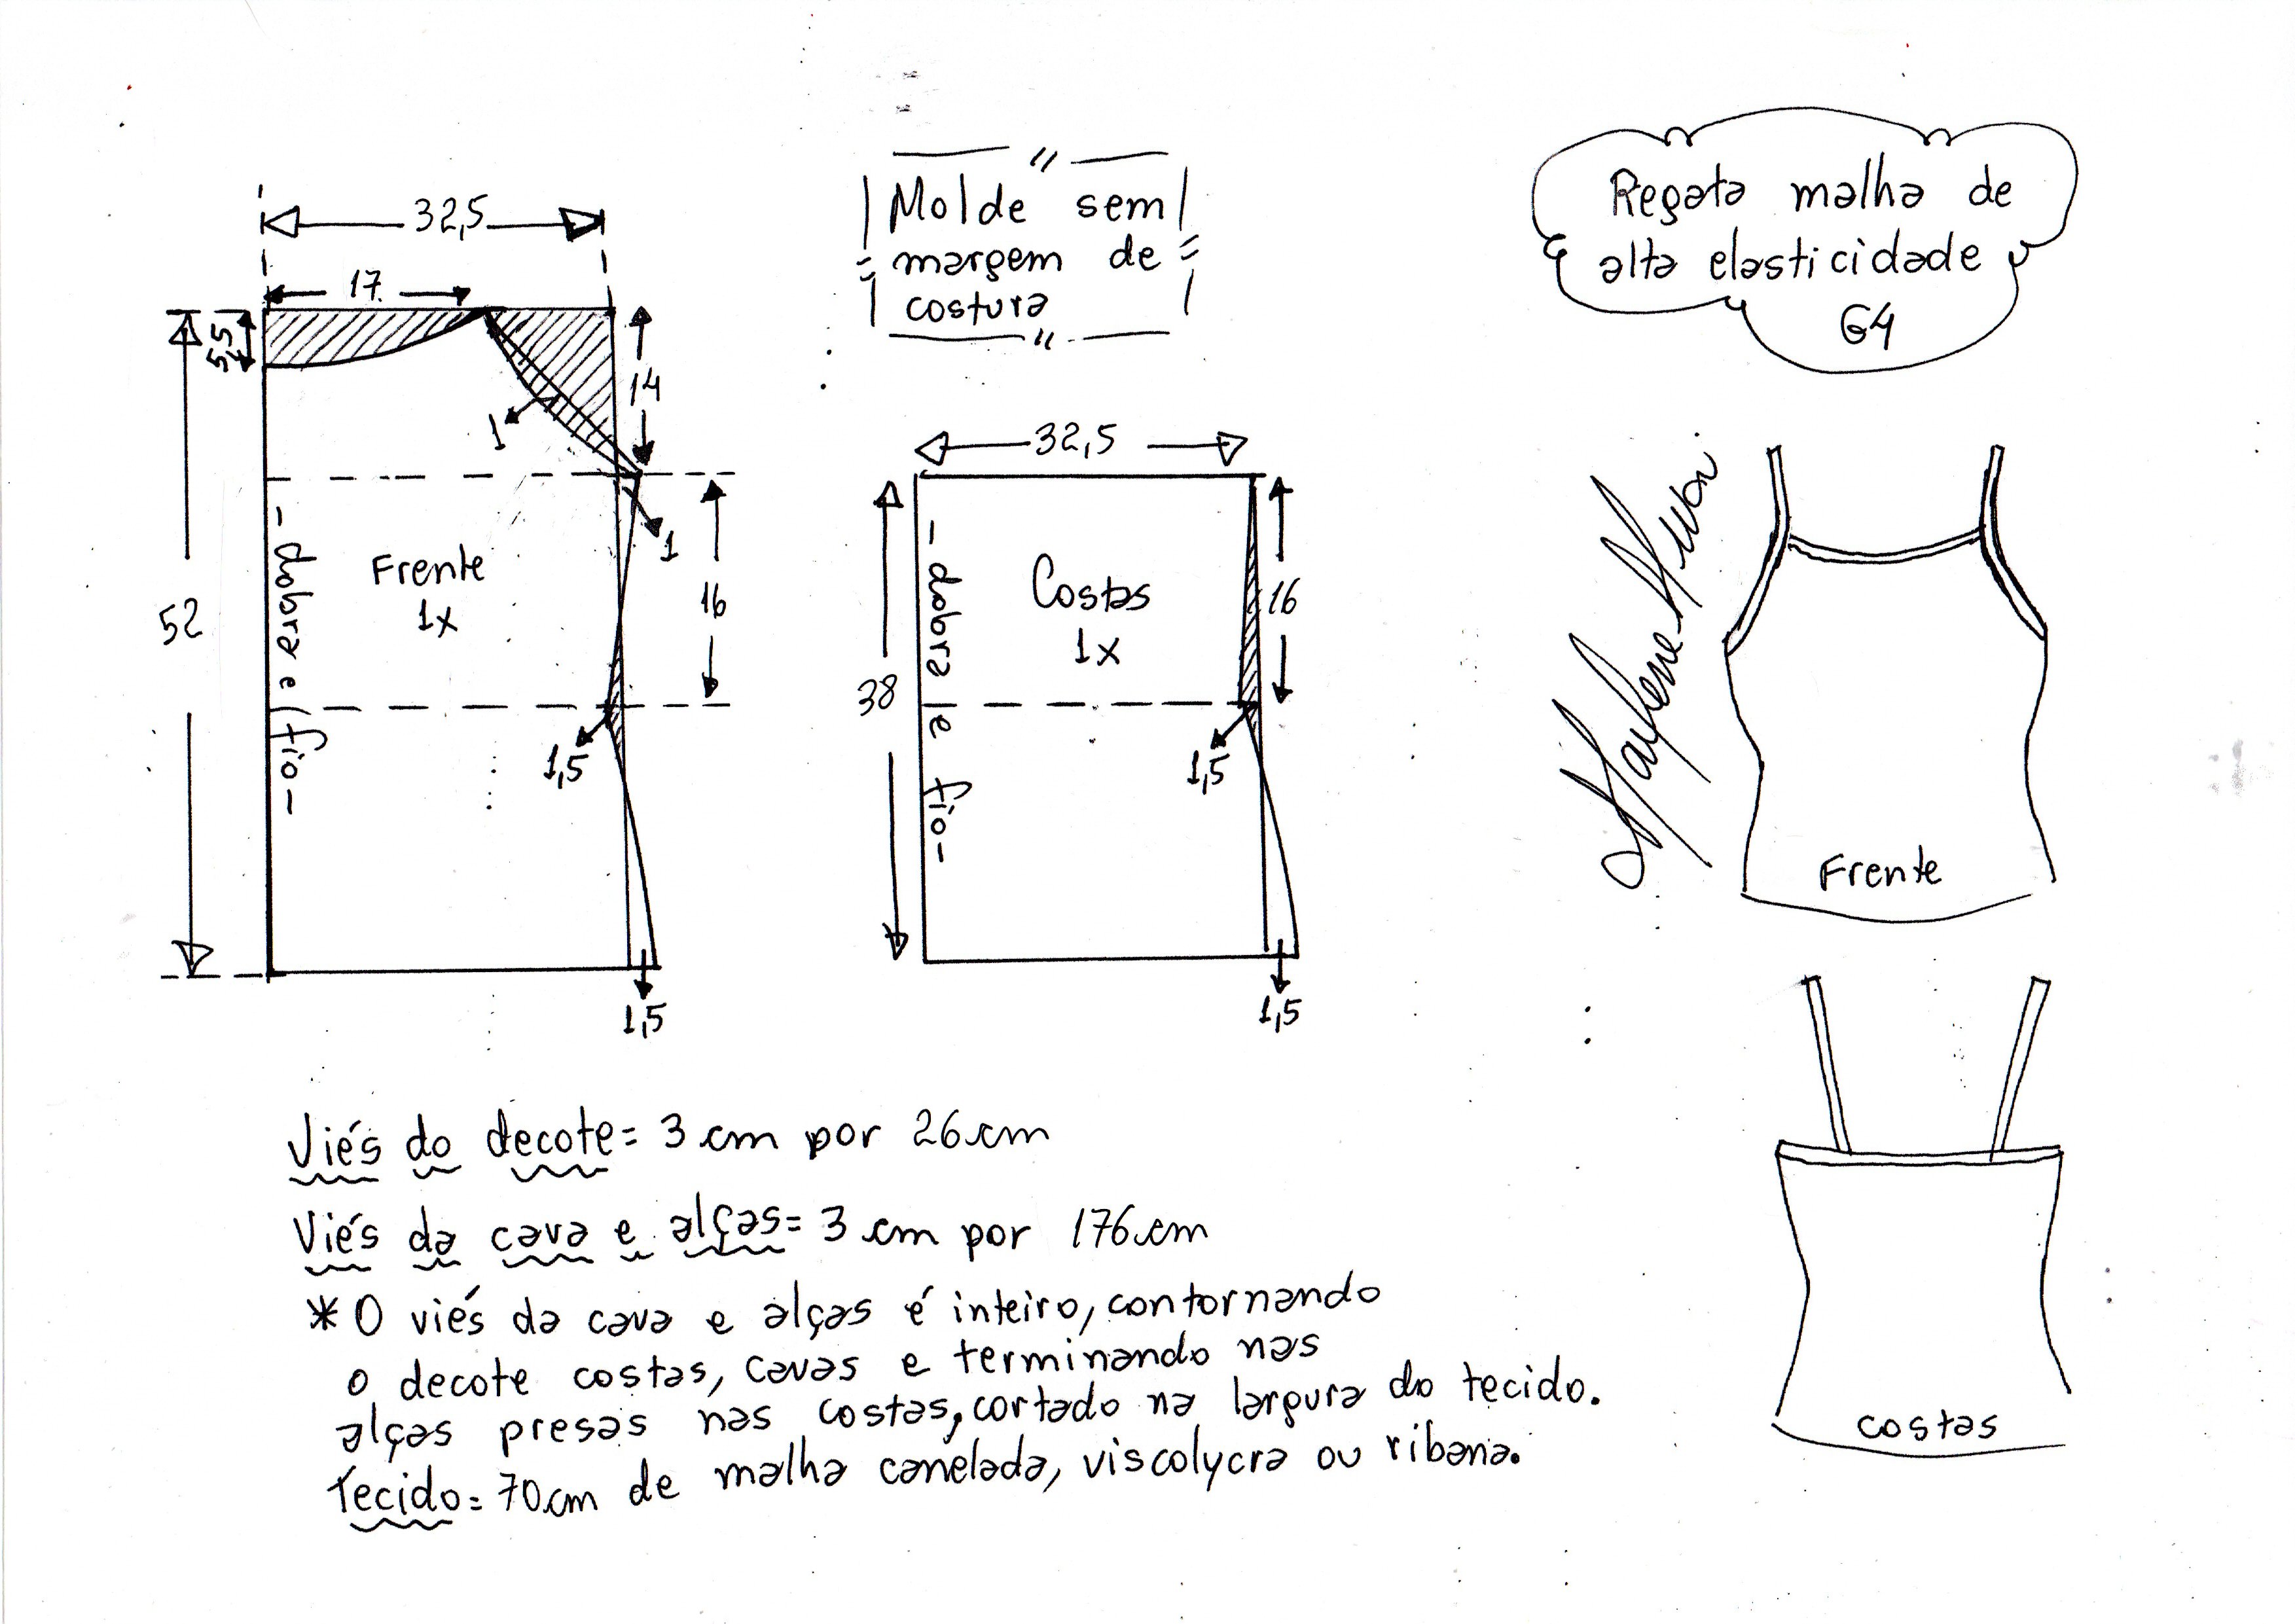 32,5
17
5,5
14
1
1
Frente
1x
16
52
- dobra e fio -
1,5
1,5
"Molde sem
margem de
costura"
32,5
Costas
1x
16
38
- dobra e fio -
1,5
1,5
Regata malha de
alta elasticidade
G4
Frente
costas
Viés do decote = 3 cm por 26 cm
Viés da cava e alças = 3 cm por 176 cm
* O viés da cava e alças é inteiro, contornando
o decote costas, cavas e terminando nas
alças presas nas costas, cortado na largura do tecido.
Tecido = 70 cm de malha canelada, viscolycra ou ribana.